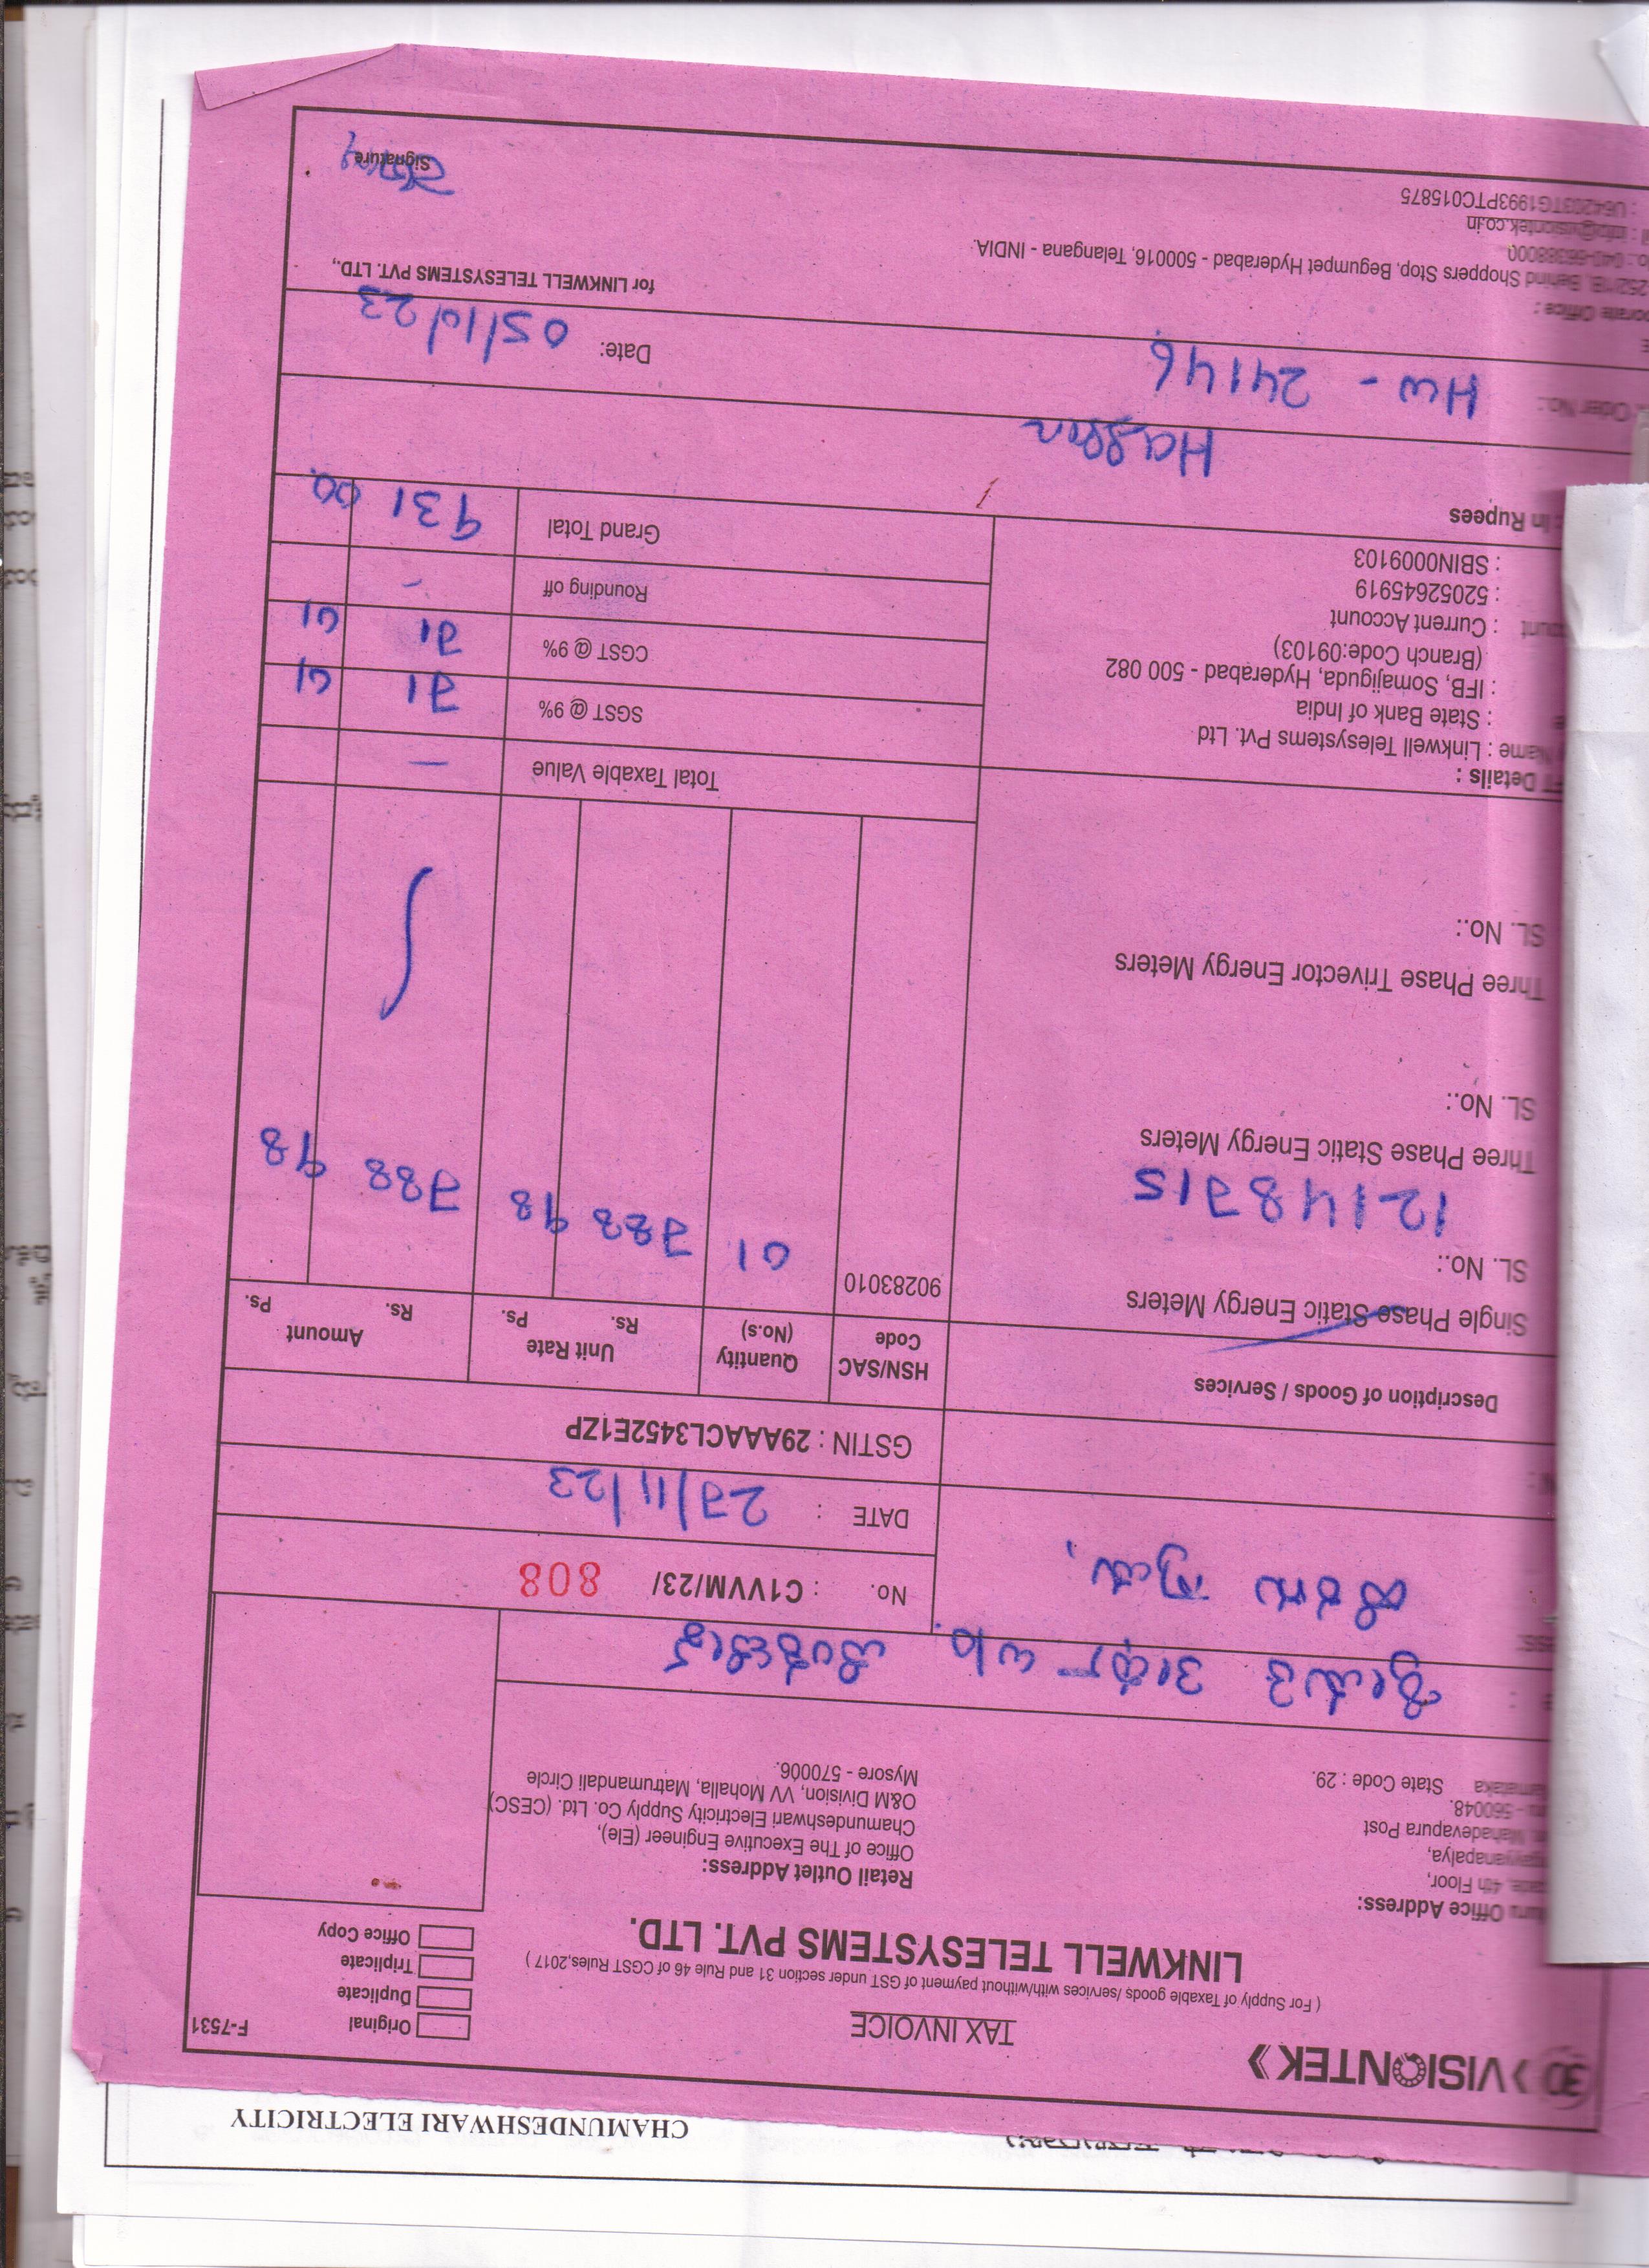 VISIONTEK
TAX INVOICE
( For Supply of Taxable goods /services with/without payment of GST under section 31 and Rule 46 of CGST Rules,2017 )
LINKWELL TELESYSTEMS PVT. LTD.
F-7531
Original
Duplicate
Triplicate
Office Copy
Office Address:
4th Floor,
Mahadevapura Post
- 560048.
State Code : 29.
Retail Outlet Address:
Office of The Executive Engineer (Ele),
Chamundeshwari Electricity Supply Co. Ltd. (CESC)
O&M Division, VV Mohalla, Matrumandali Circle
Mysore - 570006.
No. : C1VVM/23/ 808
DATE : 27/11/23
GSTIN : 29AAACL3452E1ZP
Description of Goods / Services
HSN/SAC Code
Quantity (No.s)
Unit Rate
Rs. Ps.
Amount
Rs. Ps.
Single Phase Static Energy Meters
90283010
01
788 98
788 98
SL. No.:
12148715
Three Phase Static Energy Meters
SL. No.:
Three Phase Trivector Energy Meters
SL. No.:
Total Taxable Value —
SGST @ 9% 71 01
CGST @ 9% 71 01
Rounding off -
Grand Total 931 00
Details :
Name : Linkwell Telesystems Pvt. Ltd
: State Bank of India
: IFB, Somajiguda, Hyderabad - 500 082
(Branch Code:09103)
: Current Account
: 52052645919
: SBIN0009103
In Rupees
Hassan
Oder No.: HW - 24146
Date: 05/10/23
Office :
Behind Shoppers Stop, Begumpet Hyderabad - 500016, Telangana - INDIA.
040-66388000
: info@visiontek.co.in
: U64203TG1993PTC015875
for LINKWELL TELESYSTEMS PVT. LTD.,
Signature
CHAMUNDESHWARI ELECTRICITY